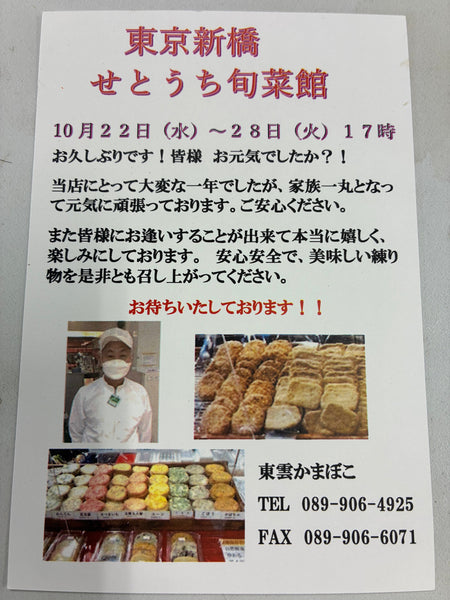 東京新橋
せとうち旬菜館
10月22日（水）～28日（火）17時
お久しぶりです！皆様　お元気でしたか？！
当店にとって大変な一年でしたが、家族一丸となっ
て元気に頑張っております。ご安心ください。
また皆様にお逢いすることが出来て本当に嬉しく、
楽しみにしております。　安心安全で、美味しい練り
物を是非とも召し上がってください。
お待ちいたしております！！
東雲かまぼこ
TEL 089-906-4925
FAX 089-906-6071